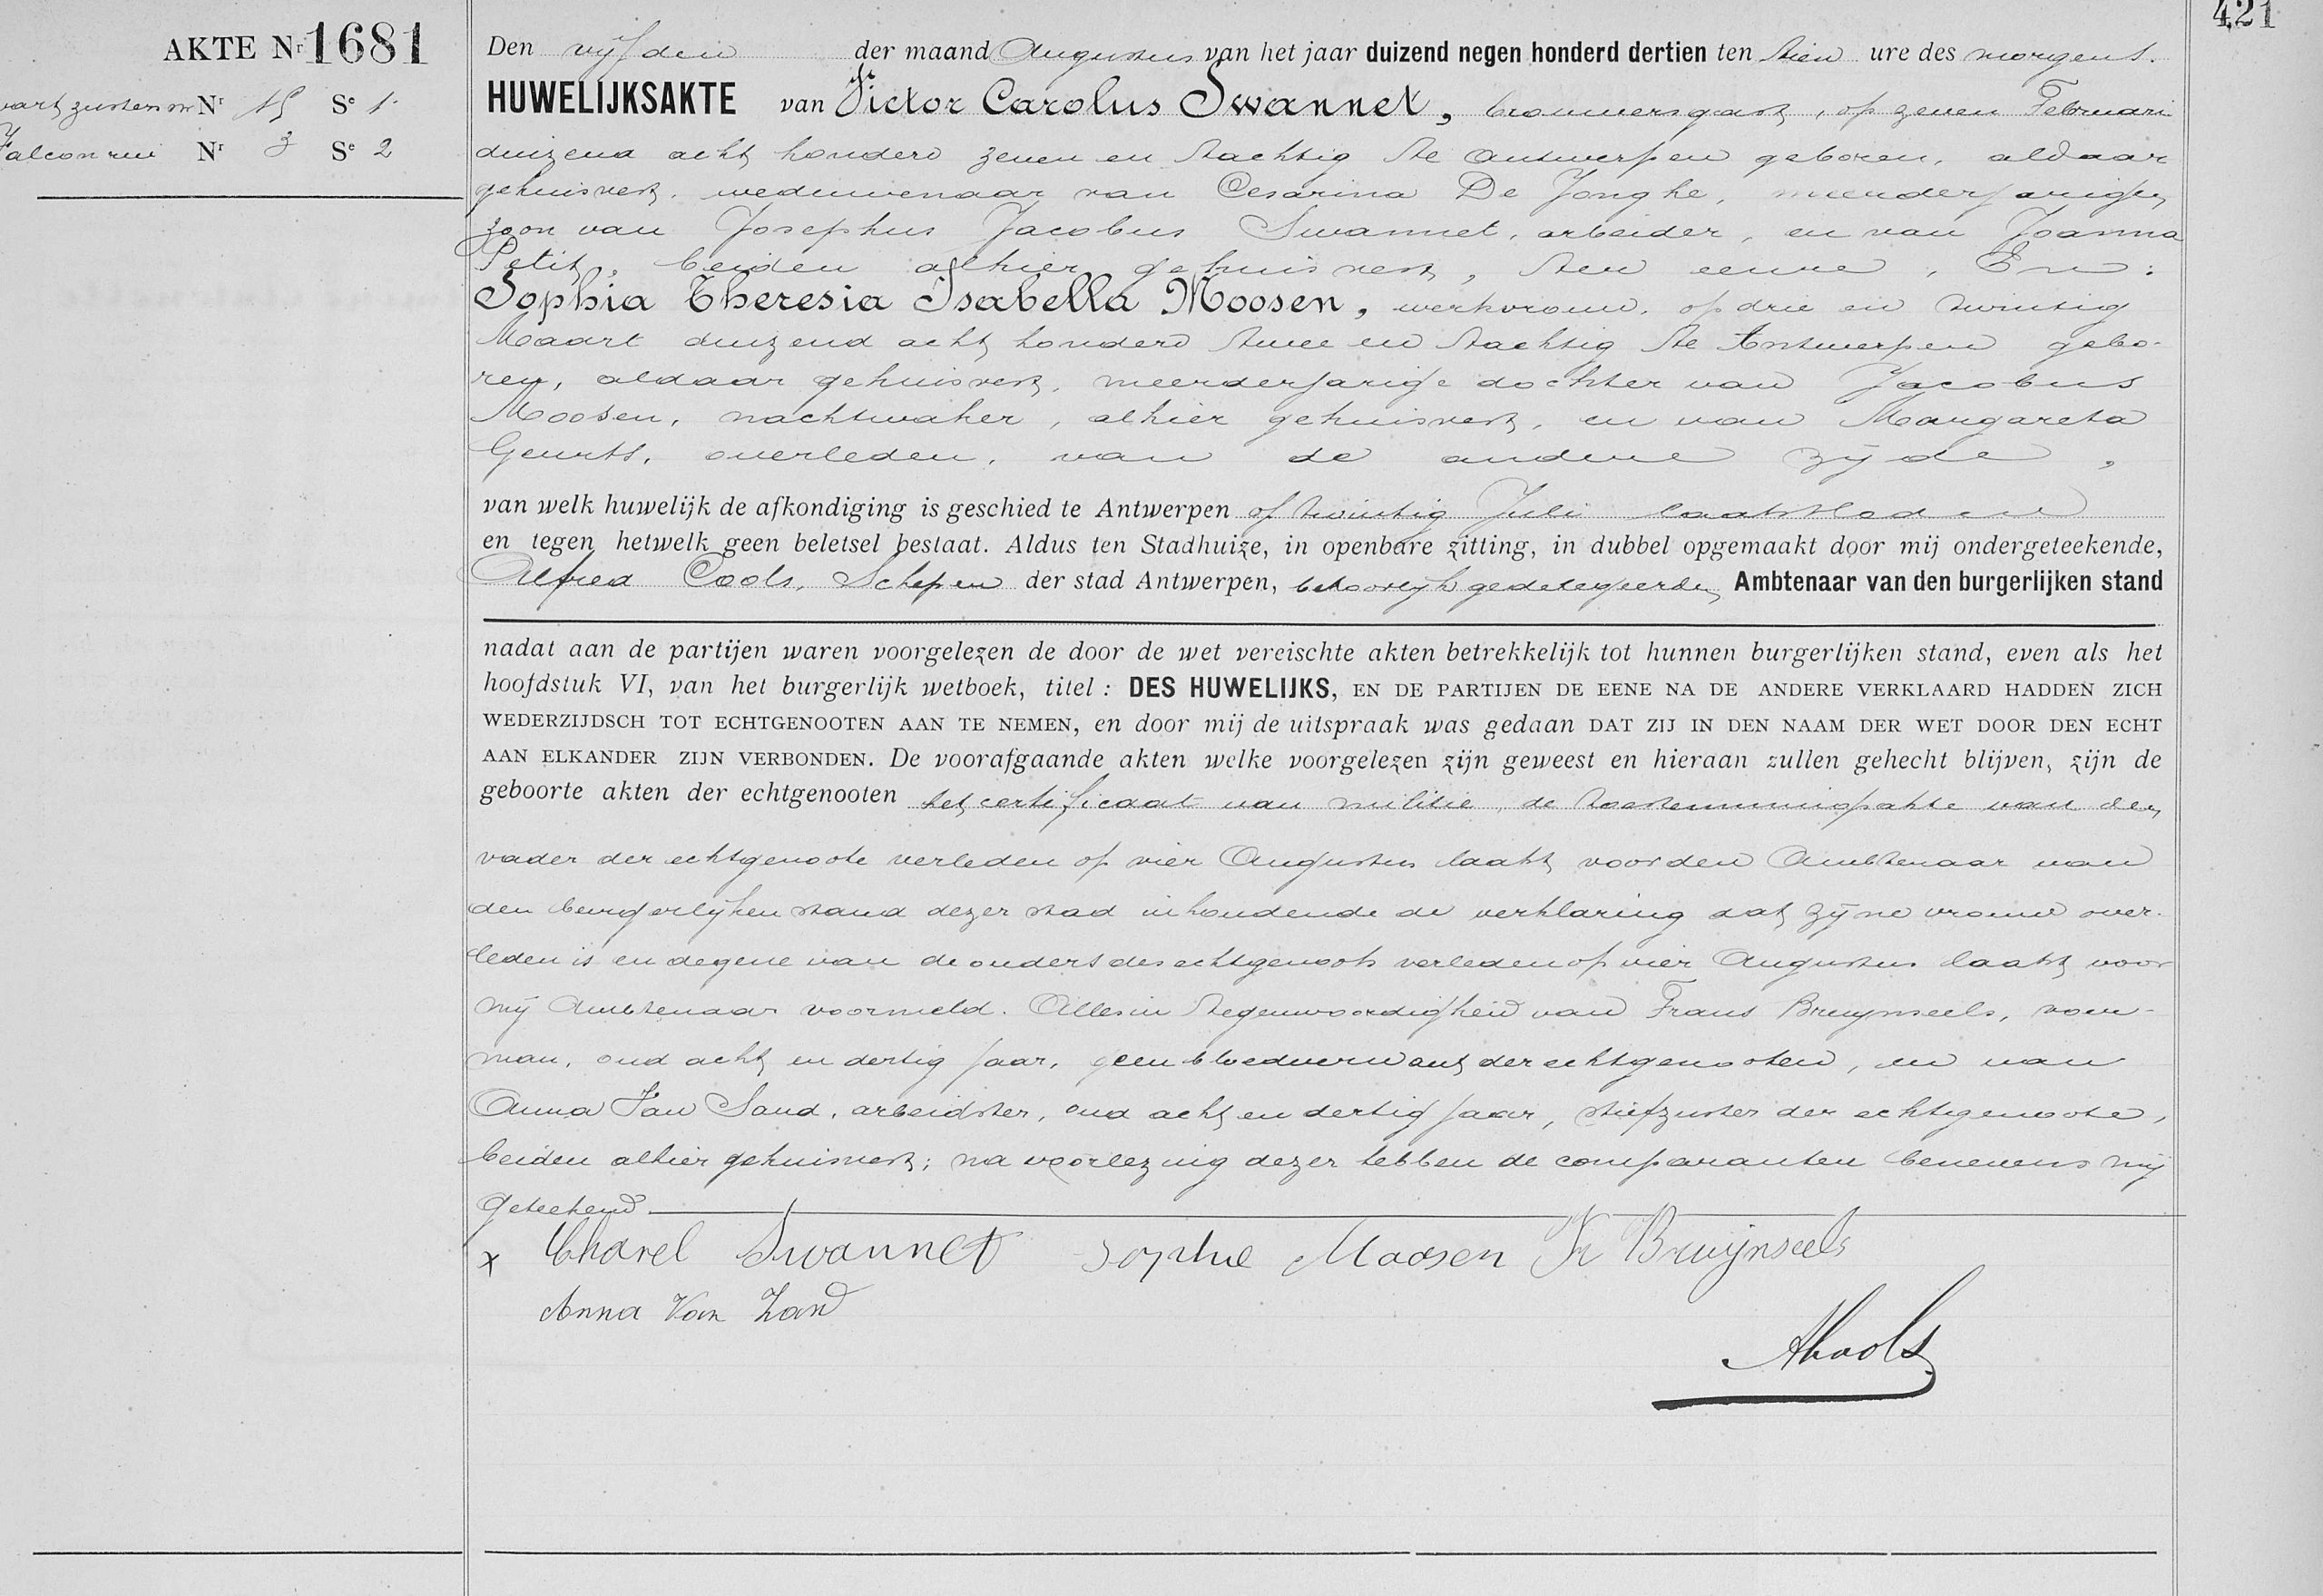 421
AKTE Nr 1681
Nr 15 Se 1.
Falconrui Nr 3 Se 2
Den vijfden der maand Augustus van het jaar duizend negen honderd dertien ten tien ure des morgens.
HUWELIJKSAKTE van Victor Carolus Swannet, brouwersgast, op zeven Februari
duizend acht honderd zeven en tachtig te Antwerpen geboren, aldaar
gehuisvest, weduwenaar van Cesarina De Jonghe, meerderjarige
zoon van Josephus Jacobus Swannet, arbeider, en van Joanna
Petit, beiden alhier gehuisvest, ten eenre, En:
Sophia Theresia Isabella Moosen, werkvrouw, op drie en twintig
Maart duizend acht honderd twee en tachtig te Antwerpen gebo-
ren, aldaar gehuisvest, meerderjarige dochter van Jacobus
Moosen, nachtwaker, alhier gehuisvest, en van Margareta
Geurts, overleden, van de andere zijde,
van welk huwelijk de afkondiging is geschied te Antwerpen op twintig Juli laatstleden
en tegen hetwelk geen beletsel bestaat. Aldus ten Stadhuize, in openbare zitting, in dubbel opgemaakt door mij ondergeteekende,
Alfred Cools, Schepen der stad Antwerpen, behoorlijk gedelegeerde, Ambtenaar van den burgerlijken stand
nadat aan de partijen waren voorgelezen de door de wet vereischte akten betrekkelijk tot hunnen burgerlijken stand, even als het
hoofdstuk VI, van het burgerlijk wetboek, titel: DES HUWELIJKS, EN DE PARTIJEN DE EENE NA DE ANDERE VERKLAARD HADDEN ZICH
WEDERZIJDSCH TOT ECHTGENOOTEN AAN TE NEMEN, en door mij de uitspraak was gedaan DAT ZIJ IN DEN NAAM DER WET DOOR DEN ECHT
AAN ELKANDER ZIJN VERBONDEN. De voorafgaande akten welke voorgelezen zijn geweest en hieraan zullen gehecht blijven, zijn de
geboorte akten der echtgenooten het certificaat van militie, de toestemmingsakte van den
vader der echtgenoote verleden op vier Augustus laatst voor den Ambtenaar van
den burgerlijken stand dezer stad inhoudende de verklaring dat zijne vrouw over-
leden is en degene van de ouders des echtgenoots verleden op vier Augustus laatst voor
mij Ambtenaar voormeld. Alles in tegenwoordigheid van Frans Bruynseels, voer-
man, oud acht en dertig jaar, geen bloedverwant der echtgenooten, en van
Anna Van Sand, arbeidster, oud acht en dertig jaar, stiefzuster der echtgenoote,
beiden alhier gehuisvest; na voorlezing dezer hebben de comparanten benevens mij
geteekend
x Charel Swannet Sophie Moosen Fr Bruijnseels
Anna Van Zand
ACools